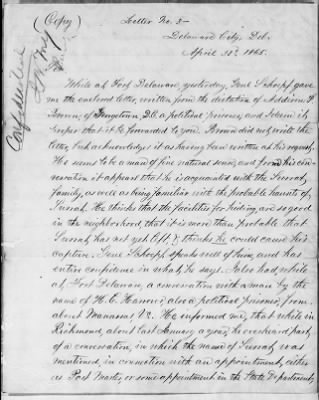 (Copy)
Letter No. 5
Delaware City, Del.
April 22d 1865.
While at Fort Delaware, yesterday, Genl Schoepf gave
me the enclosed letter, written from the dictation of Addison F.
Brown, of Georgetown, D.C. a political prisoner, and I deem it
proper that it be forwarded to you. Brown did not write the
letter, but acknowledges it as having been written at his request.
He seems to be a man of fine natural sense, and from his con-
versation it appears that he is acquainted with the Surrat
family, as well as being familiar with the probable haunts of
Surrat. He thinks that the facilities for hiding are so good
in the neighborhood, that it is more than probable that
Surrat has not yet left, & thinks he could cause his
capture. Genl Schoepf speaks well of him, and has
entire confidence in what he says. I also had, while
at Fort Delaware, a conversation with a man by the
name of H. C. also a political prisoner, from
about Manassas Va. He informed me, that while in
Richmond, about last January a year, he overheard part
of a conversation, in which the name of Surrat was
mentioned, in connection with an appointment, either
as Post Master, or some appointment in the State Department,